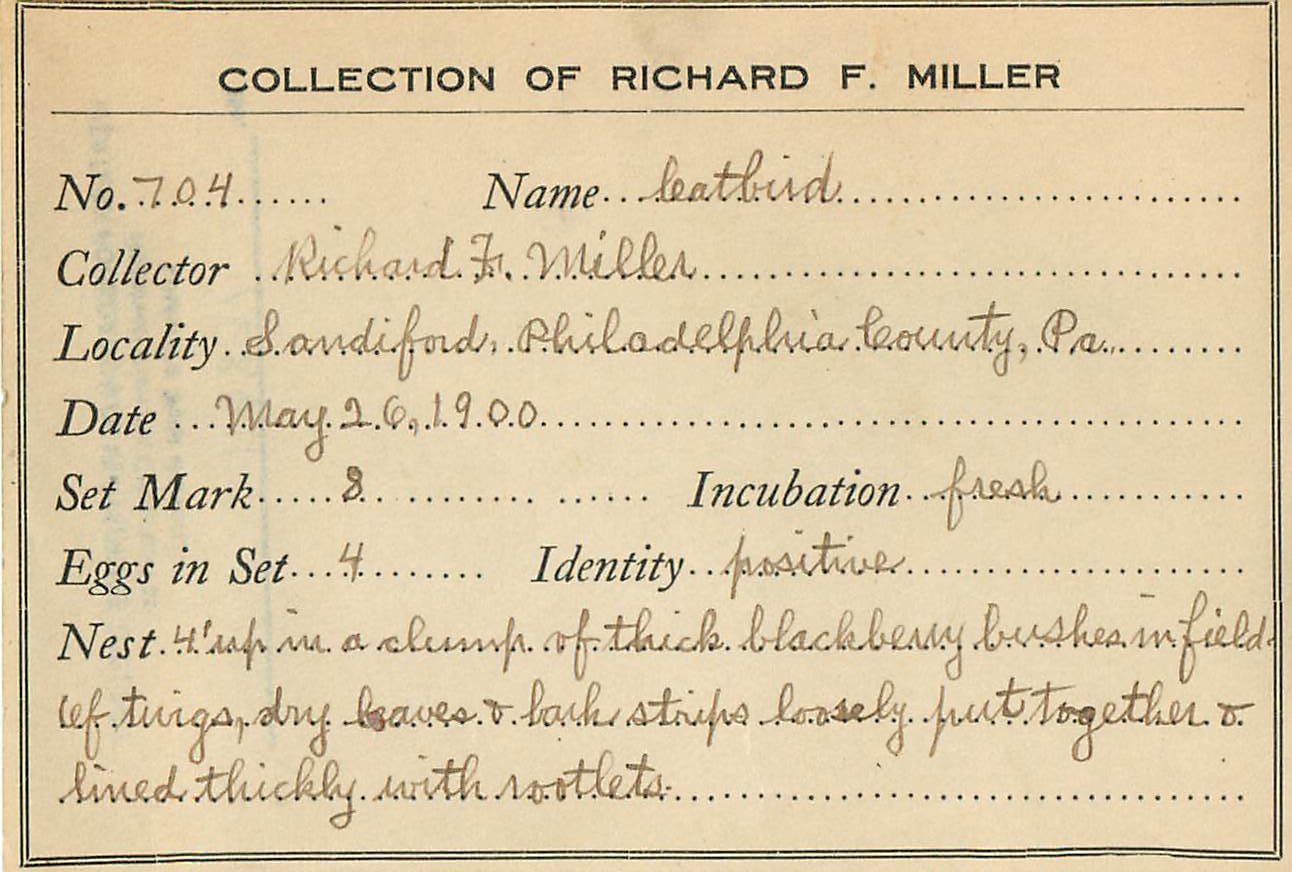 COLLECTION OF RICHARD F. MILLER
No. 704 Name Catbird
Collector Richard F. Miller
Locality Sandiford, Philadelphia County, Pa.
Date May 26, 1900
Set Mark 8 Incubation fresh
Eggs in Set 4 Identity positive
Nest 4' up in a clump of thick blackberry bushes in field-
of twigs, dry leaves & bark strips loosely put together &
lined thickly with rootlets.